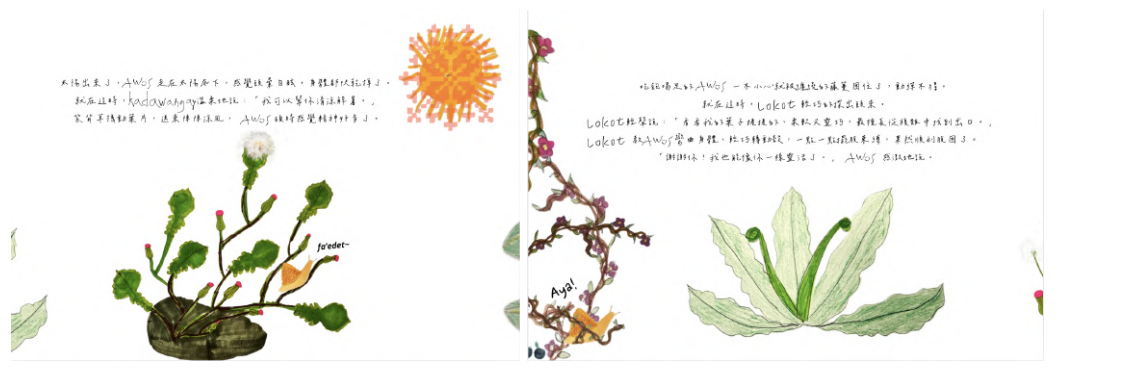 太陽出來了，AWOS 走在太陽底下，感覺頭暈目眩，身體都快乾掉了。
就在這時，kadawangay溫柔地說：「我可以幫你清涼解暑。」
葉片，送來陣陣涼風。AWOS 頓時感覺精神好多了。
fa'edet~
吃飽喝足的AWOS 一不小心就被邊邊的藤蔓困住了，動彈不得。
就在這時，Lokot 輕巧的探出頭來。
Lokot輕聲說：「看看我的葉子捲捲的，柔軟又靈巧，最後能從縫隙中找到出口。」
Lokot 教AWOS彎曲身體，輕巧轉動，一點一點掙脫束縛，果然順利脫困了。
「謝謝你！我也能像你一樣靈活了。」AWOS 感激地說。
Aya!